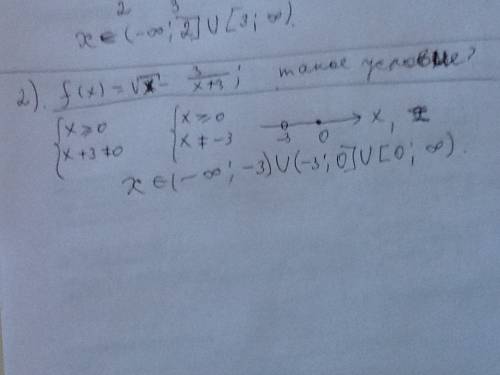 2 3
x ∈ (-∞; 2] ∪ [3; ∞).
2). f(x) = √x - 3/(x+3); такое условие?
{x ≥ 0 {x ≥ 0 x,
{x+3 ≠ 0 {x ≠ -3 -3 0
x ∈ (-∞; -3) ∪ (-3; 0] ∪ [0; ∞).